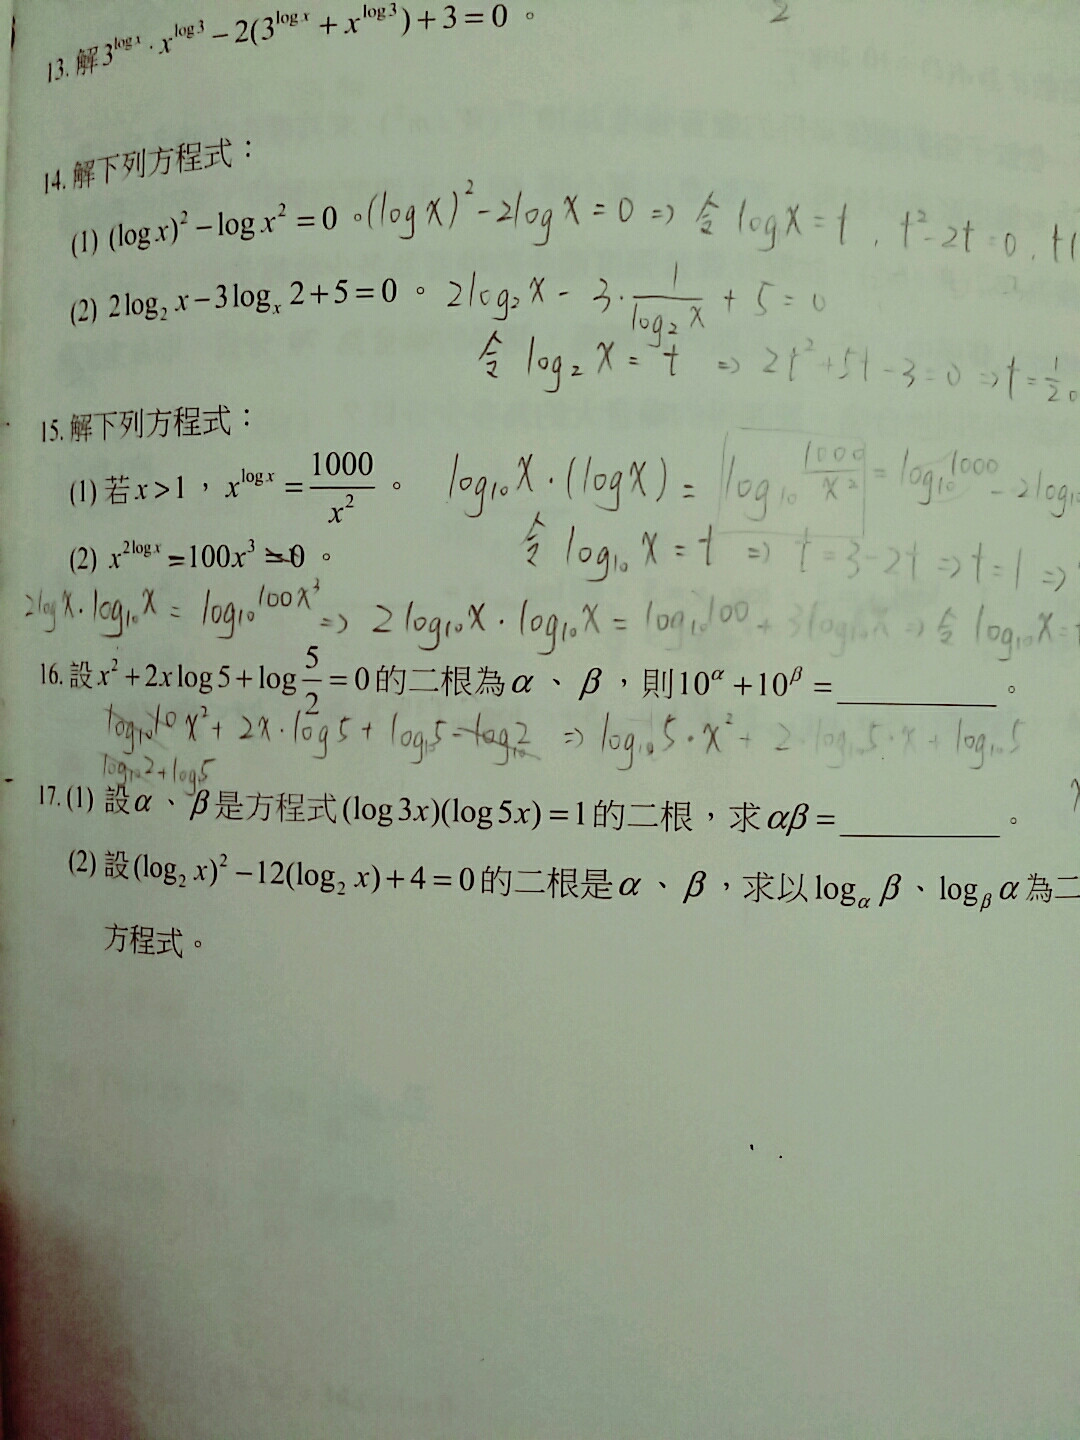 2
13. 解 3^{log x} · x^{log 3} − 2(3^{log x} + x^{log 3}) + 3 = 0 。
14. 解下列方程式：
(1) (log x)² − log x² = 0 。(log x)² - 2log x = 0 ⇒ 令 log x = t , t² - 2t = 0 , t(
(2) 2log₂ x − 3logₓ 2 + 5 = 0 。 2log₂ x - 3 · 1/log₂ x + 5 = 0
令 log₂ x = t ⇒ 2t² + 5t - 3 = 0 ⇒ t = 1/2
15. 解下列方程式：
(1) 若 x > 1，x^{log x} = 1000/x² 。 log₁₀ x · (log x) = log₁₀ 1000/x² = log₁₀ 1000 - 2log₁₀
令 log₁₀ x = t ⇒ t = 3 - 2t ⇒ t = 1 ⇒
(2) x^{2log x} = 100x³ = 0 。
2log x · log₁₀ x = log₁₀ 100x³ ⇒ 2log₁₀ x · log₁₀ x = log₁₀ 100 + 3log₁₀ x ⇒ 令 log₁₀ x =
16. 設 x² + 2x log 5 + log 5/2 = 0 的二根為 α 、 β，則 10^α + 10^β = ________ 。
log₁₀ 10 x² + 2x · log 5 + log₁₀ 5 - log₁₀ 2 ⇒ log₁₀ 5 · x² + 2 · log₁₀ 5 · x + log₁₀ 5
log₁₀ 2 + log 5
17. (1) 設 α 、 β 是方程式 (log 3x)(log 5x) = 1 的二根，求 αβ = ________ 。
(2) 設 (log₂ x)² − 12(log₂ x) + 4 = 0 的二根是 α 、 β，求以 log_α β 、 log_β α 為二
方程式。